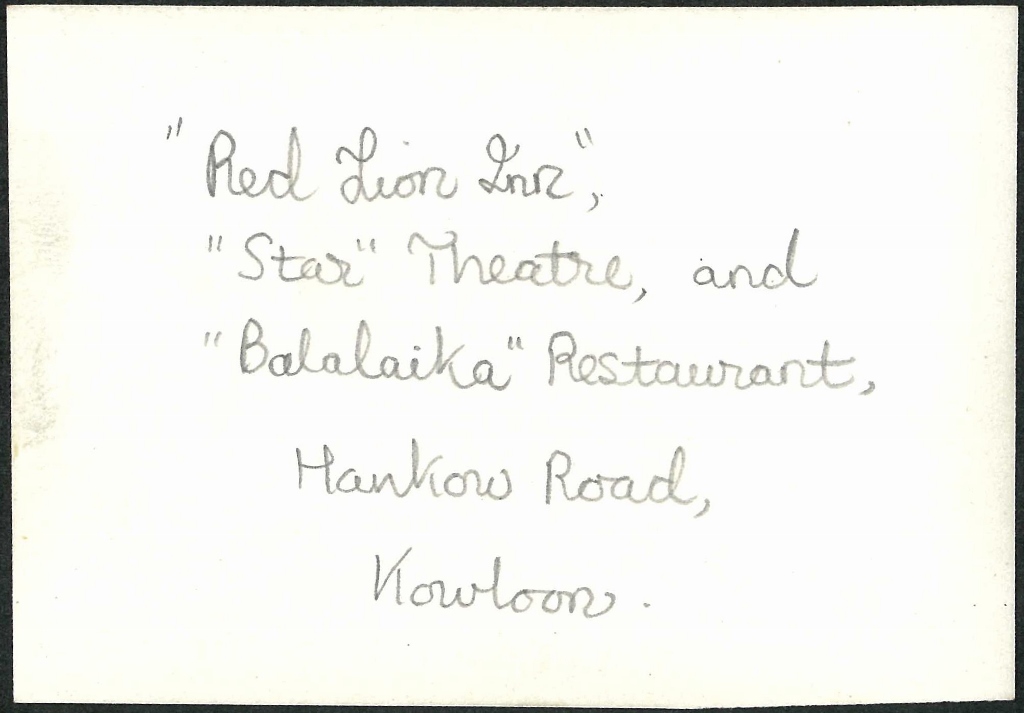 "Red Lion Inn",
"Star" Theatre, and
"Balalaika" Restaurant,
Hankow Road,
Kowloon.